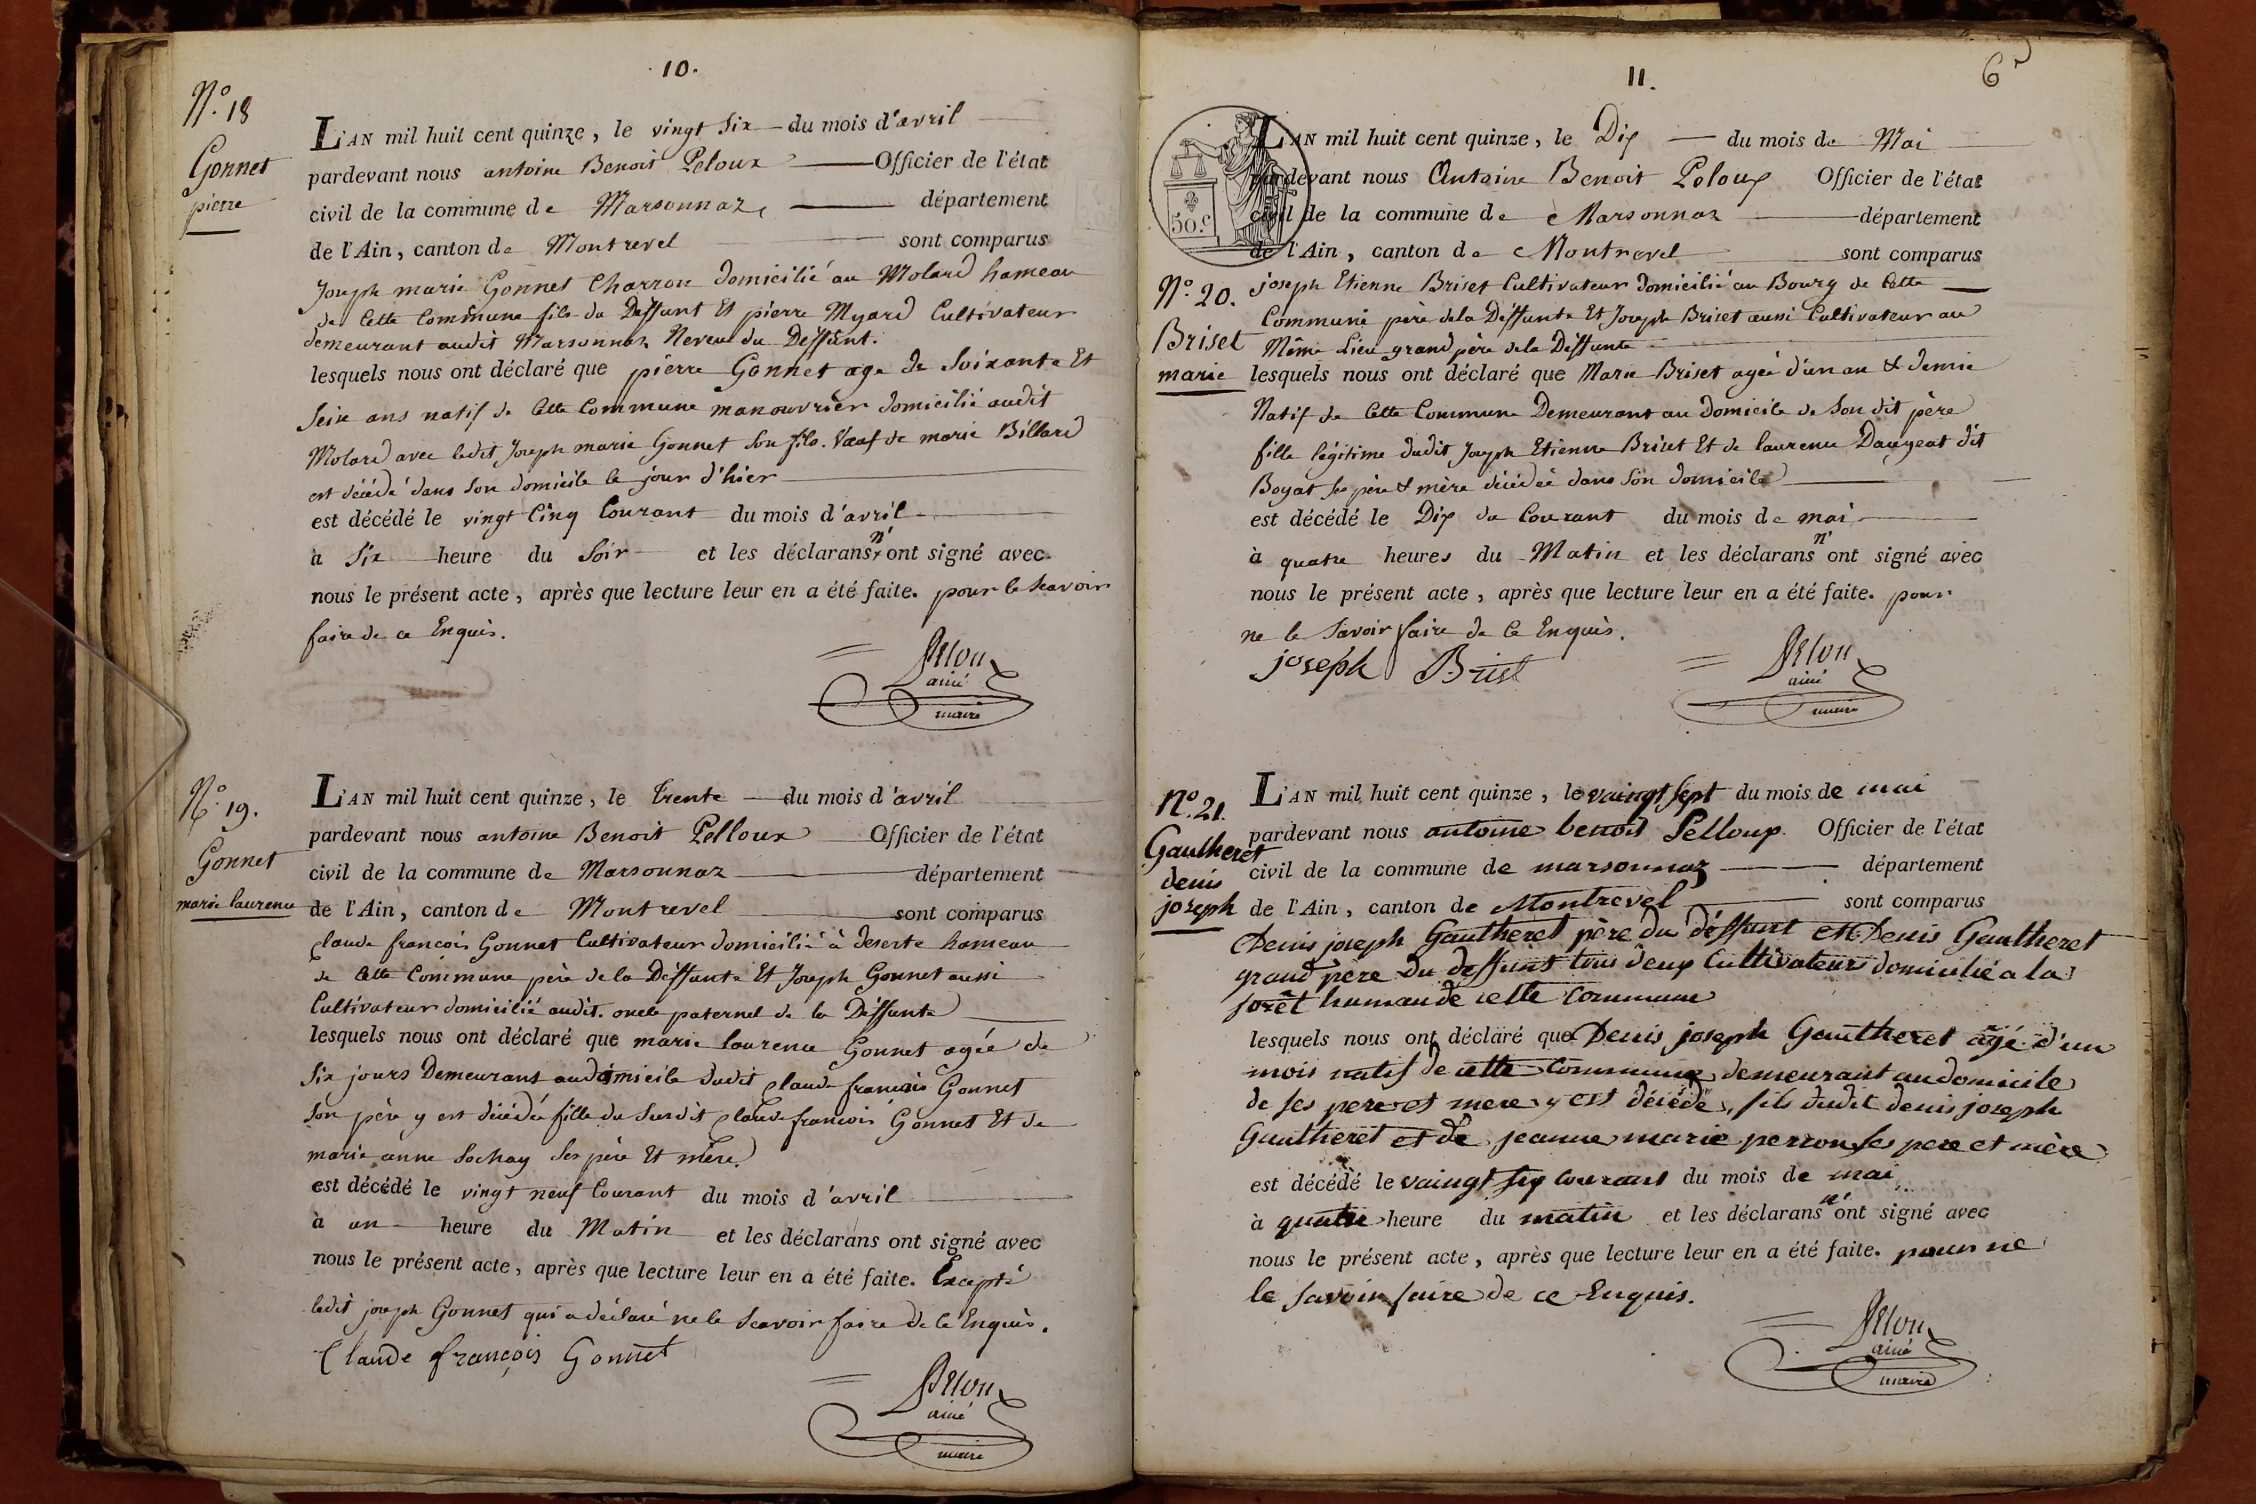 10.
N.º 18
Gonnet
pierre
L'AN mil huit cent quinze, le vingt six du mois d'avril
pardevant nous antoine Benoit Peloux Officier de l'état
civil de la commune de Marsonnaz, département
de l'Ain, canton de Montrevel sont comparus
Joseph marie Gonnet Charron domicilié au Molard hameau
de Cette Commune fils du Deffunt Et pierre Myard Cultivateur
demeurant audit Marsonnaz Neveu du Deffunt.
lesquels nous ont déclaré que pierre Gonnet age de Soixante Et
Seize ans natif de Cette Commune manouvrier domicilié audit
Molard avec ledit Joseph marie Gonnet Son fils. Veuf de marie Billard
est décédé dans Son domicile le jour d'hier
est décédé le vingt Cinq Courant du mois d'avril
à Six heure du Soir et les déclarans n' ont signé avec
nous le présent acte, après que lecture leur en a été faite. pour le Scavoir
faire de ce Enquis.
Pelou
ainé
maire
N.º 19.
Gonnet
marie laurence
L'AN mil huit cent quinze, le trente du mois d'avril
pardevant nous antoine Benoit Pelloux Officier de l'état
civil de la commune de Marsonnaz département
de l'Ain, canton de Montrevel sont comparus
Claude francois Gonnet Cultivateur domicilié à deserte hameau
de Cette Commune père de la Deffunte Et Joseph Gonnet aussi
Cultivateur domicilié audit. oncle paternel de la Deffunte
lesquels nous ont déclaré que marie laurence Gonnet agée de
Six jours Demeurant audomicile dudit Claude francois Gonnet
Son père y est décédée fille du Susdit Claude francois Gonnet Et de
marie anne Sochay Ses père Et mère.
est décédé le vingt neuf Courant du mois d'avril
à un heure du Matin et les déclarans ont signé avec
nous le présent acte, après que lecture leur en a été faite. Excepté
ledit joseph Gonnet qui a déclaré ne le Scavoir faire de Ce Enquis.
Claude françois Gonnet
Pelou
ainé
maire
11.
6
50.c
L'AN mil huit cent quinze, le Dix du mois de Mai
pardevant nous Antoine Benoit Peloux Officier de l'état
civil de la commune de Marsonnaz département
de l'Ain, canton de Montrevel sont comparus
N.º 20.
Briset
marie
joseph Etienne Briset Cultivateur domicilié au Bourg de Cette
Commune père dela Deffunte Et Joseph Briset aussi Cultivateur au
Même Lieu grand père dela Deffunte
lesquels nous ont déclaré que Marie Briset agée d'un an & demie
Natif de Cette Commune Demeurant au domicile de Son dit père
fille légitime dudit Joseph Etienne Briset Et de laurence Daugeat dit
Boyat Ses père & mère décédée dans Son domicile
est décédé le Dix du Courant du mois de mai
à quatre heures du Matin et les déclarans n' ont signé avec
nous le présent acte, après que lecture leur en a été faite. pour
ne le Savoir faire de Ce Enquis.
joseph Brist
Pelou
ainé
maire
N.º 21.
Gautheret
denis
joseph
L'AN mil huit cent quinze, le vaingt sept du mois de mai
pardevant nous antoine benoit Pelloux. Officier de l'état
civil de la commune de marsonnaz département
de l'Ain, canton de Montrevel sont comparus
Denis joseph Gautheret père du déffunt et Denis Gautheret
grand père du deffunt tous deux Cultivateur domicilié a la
forêt hamau de cette commune
lesquels nous ont déclaré que Denis joseph Gautheret agé d'un
mois natif de cette commune demeurant audomicile
de ses pere et mere y est décédé, fils dudit denis joseph
Gautheret et de jeanne marie perron ses pere et mère
est décédé le vaingt six courant du mois de mai
à quatre heure du matin et les déclarans n' ont signé avec
nous le présent acte, après que lecture leur en a été faite. pour ne
le savoir faire de ce Enquis.
Pelou
ainé
maire